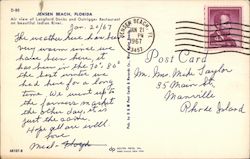 D-80
JENSEN BEACH, FLORIDA
Air view of Langford Docks and Outrigger Restaurant
on beautiful Indian River.
Jan. 21/67
The weather here has been
very warm since we
have been here, it
has been in the 70's, 80's
the best winter we
had here for a long
time. We went up to
the farmers market
the other day, it is
just the same.
Hope all are well.
Love
JENSEN BEACH
JAN 21
PM
1967
Post Card
Mr. Mrs. Mike Taylor
55 Main St.
Manville
Rhode Island